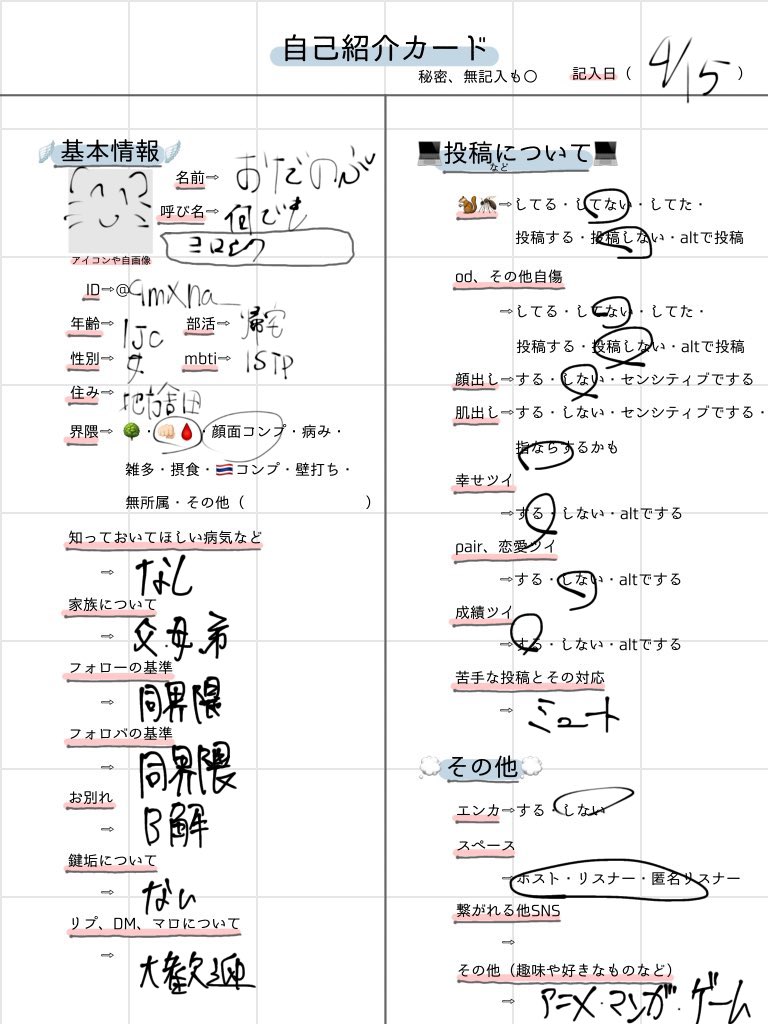 自己紹介カード
秘密、無記入も〇
記入日（ 4/15 ）
基本情報
名前⇒ おだのぶ
呼び名⇒ 何でも
アイコンや自画像
ID⇒@9mxna_
年齢⇒ 1JC 部活⇒ 帰宅
性別⇒ 女 mbti⇒ ISTP
住み⇒ 地方
界隈⇒ 🌳・👊🏻🩸・顔面コンプ・病み・
雑多・摂食・🇹🇭コンプ・壁打ち・
無所属・その他（ ）
知っておいてほしい病気など
⇒ なし
家族について
⇒ 父.母.弟
フォローの基準
⇒ 同界隈
フォロバの基準
⇒ 同界隈
お別れ
⇒ B解
鍵垢について
⇒ ない
リプ、DM、マロについて
⇒ 大歓迎
投稿について
など
🐿️🦟⇒してる・してない・してた・
投稿する・投稿しない・altで投稿
od、その他自傷
⇒してる・してない・してた・
投稿する・投稿しない・altで投稿
顔出し⇒する・しない・センシティブでする
肌出し⇒する・しない・センシティブでする・
指ならするかも
幸せツイ
⇒する・しない・altでする
pair、恋愛ツイ
⇒する・しない・altでする
成績ツイ
⇒する・しない・altでする
苦手な投稿とその対応
⇒ ミュート
その他
エンカ⇒する・しない
スペース
⇒ホスト・リスナー・匿名リスナー
繋がれる他SNS
⇒
その他（趣味や好きなものなど）
⇒ アニメ・マンガ・ゲーム